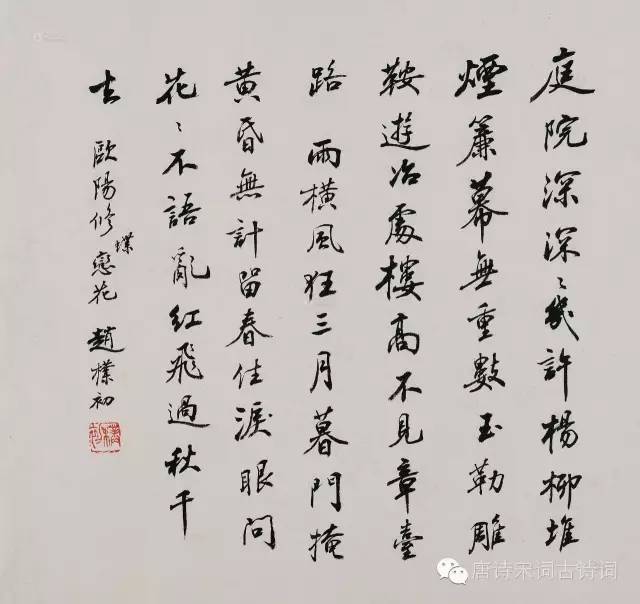 庭院深深〻幾許楊柳堆
煙簾幕無重數玉勒雕
鞍遊冶處樓高不見章臺
路 雨橫風狂三月暮門掩
黃昏無計留春住淚眼問
花〻不語亂紅飛過秋千
去 歐陽修蝶戀花 趙樸初
唐诗宋词古诗词